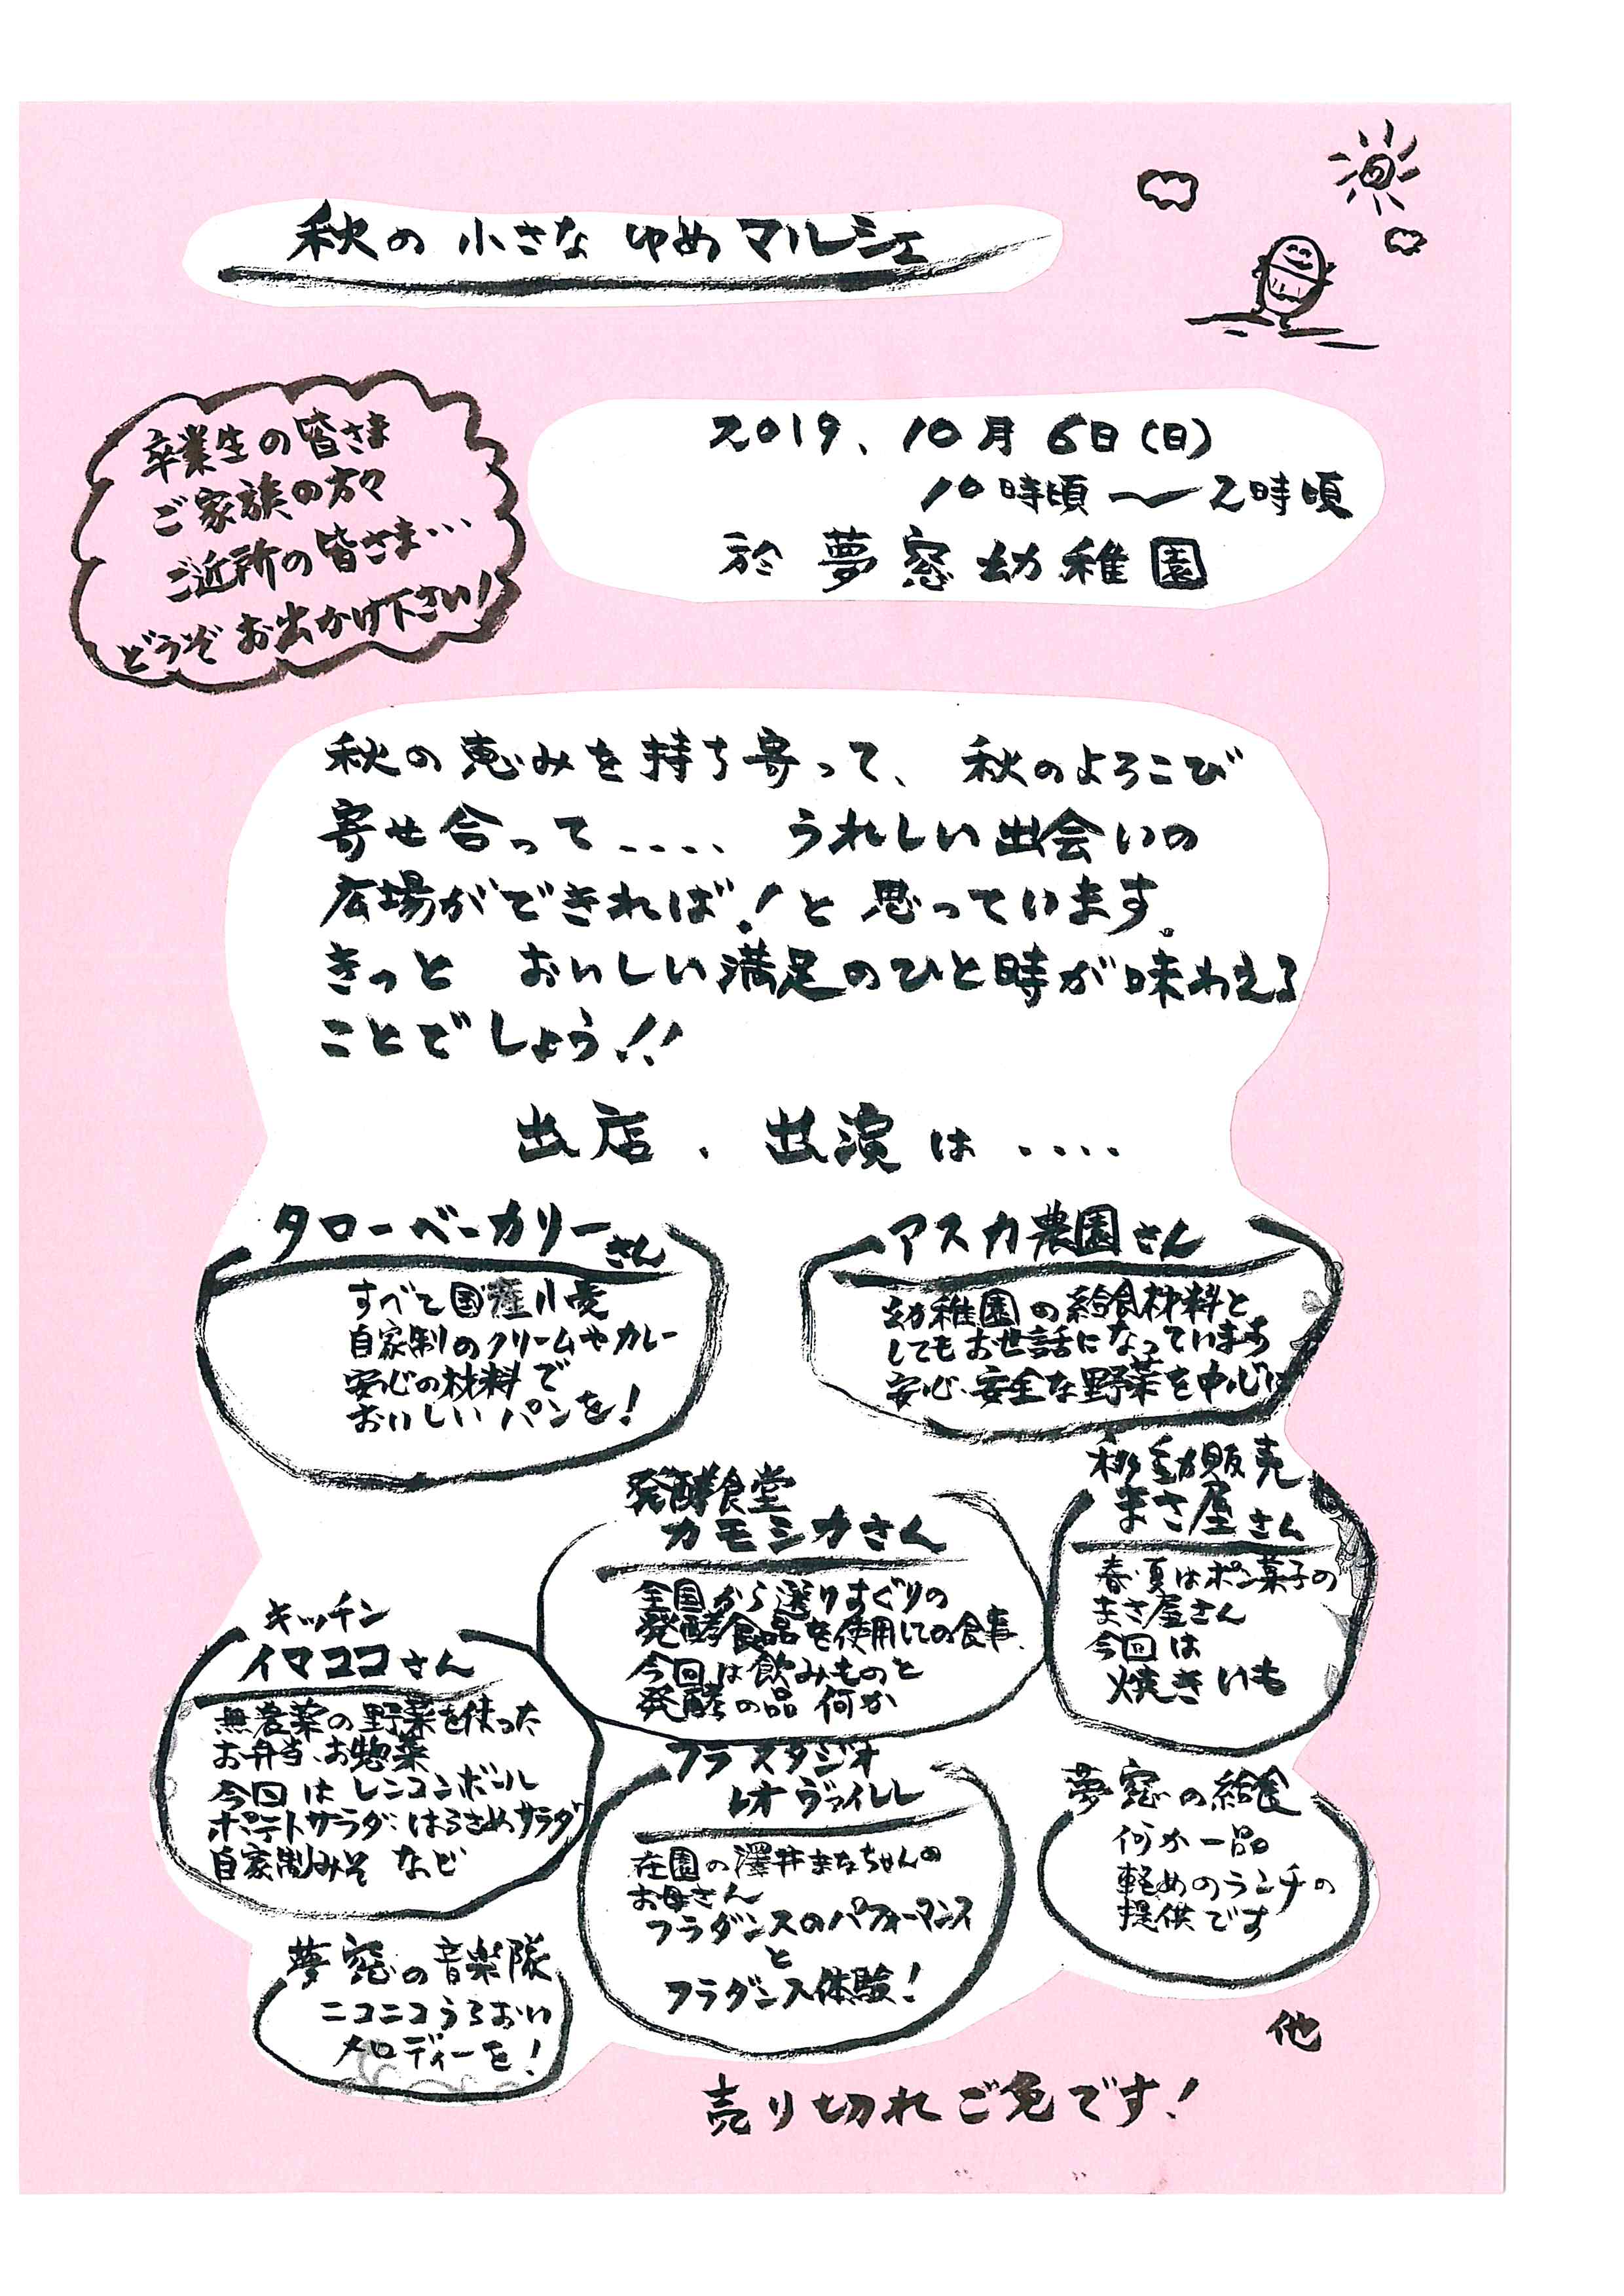 秋の小さなゆめマルシェ
卒業生の皆さま
ご家族の方々
ご近所の皆さま…
どうぞお出かけ下さい!
2019、10月6日(日)
10時頃〜2時頃
於 夢窓幼稚園
秋の恵みを持ち寄って、秋のよろこび
寄せ合って....、うれしい出会いの
広場ができれば!と思っています。
きっと おいしい満足のひと時が味わえる
ことでしょう!!
出店、出演は....
タローベーカリーさん
すべて国産小麦
自家制のクリームやカレー
安心の材料で
おいしいパンを!
アスカ農園さん
幼稚園の給食材料と
してもお世話になっています
安心・安全な野菜を中心に
発酵食堂
カモシカさん
全国から選りすぐりの
発酵食品を使用しての食事、
今回は飲みものと
発酵の品 何か
移動販売
まさ屋さん
春・夏はポン菓子の
まさ屋さん
今回は
焼きいも
キッチン
イマココさん
無農薬の野菜を使った
お弁当、お惣菜
今回は レンコンボール
ポテトサラダ・はるさめサラダ
自家制みそ など
フラスタジオ
レオ ヴァイレレ
在園の澤井まなちゃんの
お母さん
フラダンスのパフォーマンス
と
フラダンス体験!
夢窓の給食
何か一品
軽めのランチの
提供です
夢窓の音楽隊
ニコニコうるおい
メロディーを!
他
売り切れご免です!